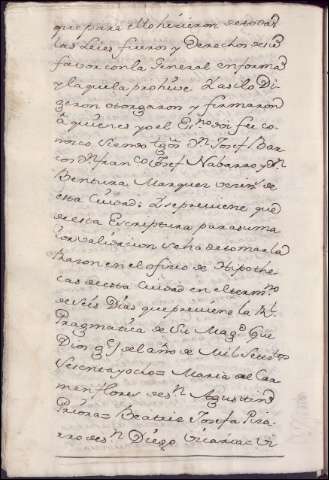 que para ello hicieron de todas
las Leies fueros y derechos de su
fabor con la General en forma
y la que la prohive. Y asi lo Di
xeron otorgaron y firmaron
â quienes yo el Esno doi fee co
nozco siendo tgos Dn Josef Bar
cos Dn Franco Josef Nabarro y Dn
Bentura Marquez vecinos de
esta Ciudad; y se previene que
de esta Escriptura para su ma
ior validacion se ha de tomar la
Razon en el oficio de Hypothe
cas de esta Ciudad en el termno
de seis Dias que previene la Rl
Pragmatica de Su Magd Que
Dios ge. del año de Mil Setectos
Sesenta y ocho = Maria del Car
men flores de Sn Agustin
Priora = Beatriz Josefa Piza
rro de Sn Diego Vicaria =